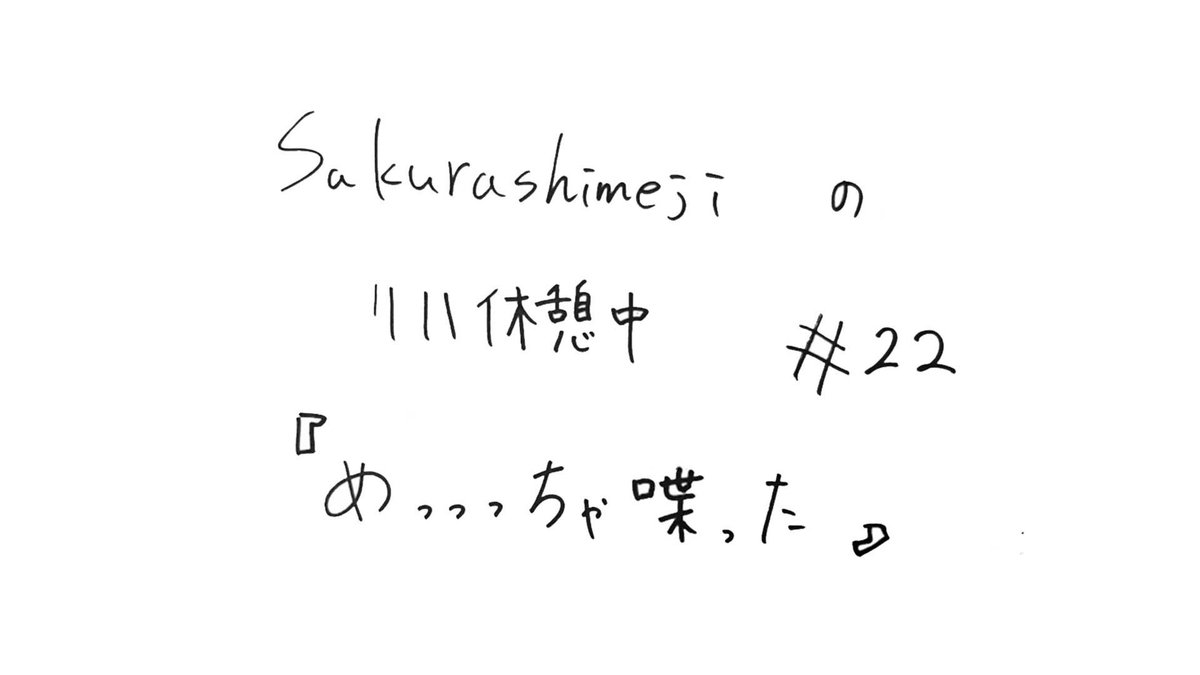 Sakurashimeji の
リハ休憩中 #22
『めっっっちゃ喋った』